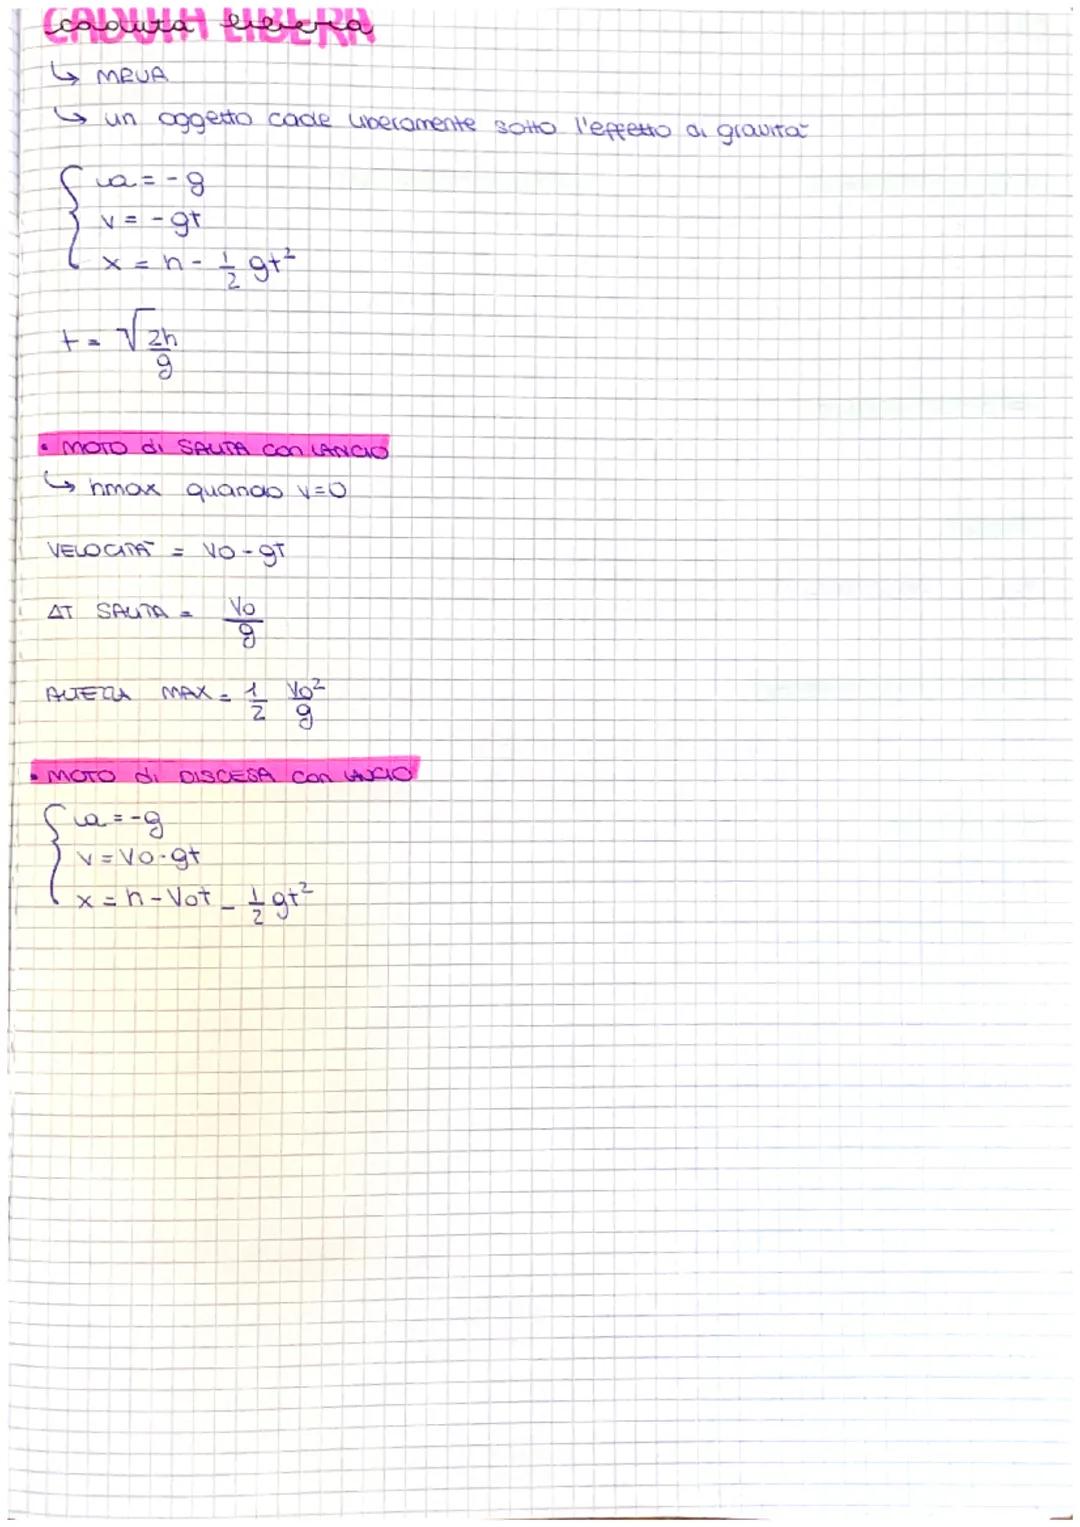 CADUTA LIBERA
caduta libera
↳ MRUA
↳ un oggetto cade liberamente sotto l'effetto di gravità
a = -g
v = -gt
x = h - 1/2 gt²
t = √2h/g
• MOTO di SALITA con LANCIO
↳ hmax quando v=0
VELOCITÀ = V0 - gT
ΔT SALITA = V0/g
ALTEZZA MAX = 1/2 V0²/g
• MOTO di DISCESA con LANCIO
a = -g
v = V0 - gt
x = h - V0t - 1/2 gt²